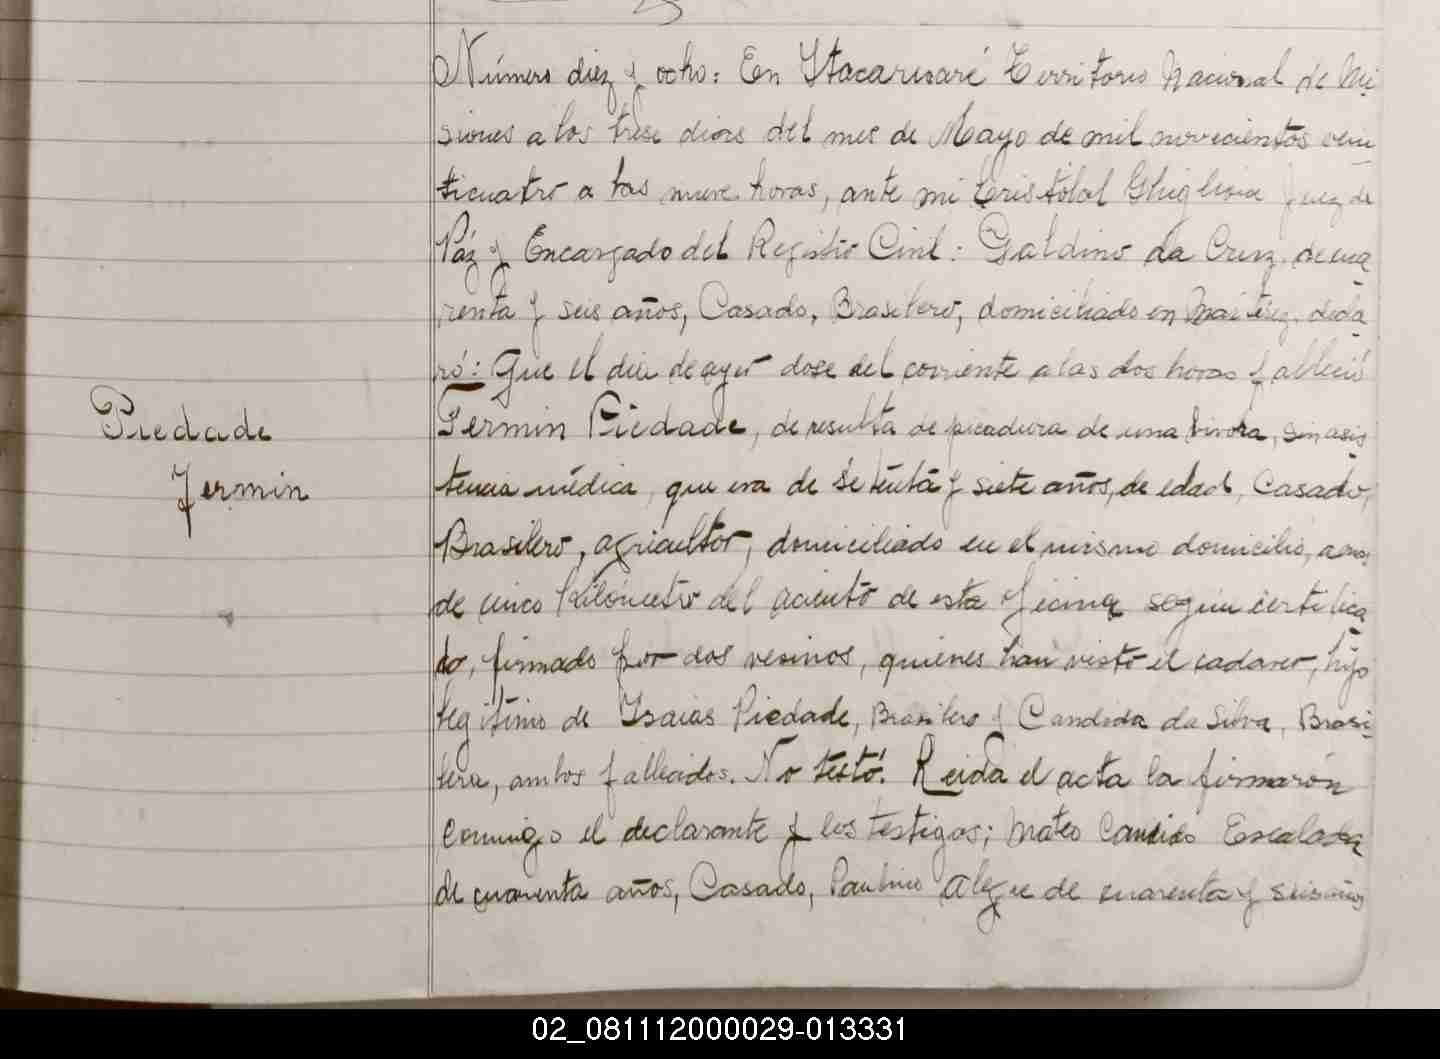 Número diez y ocho: En Itacaruaré Territorio Nacional de Mi
siones a los trese dias del mes de Mayo de mil novecientos vein
ticuatro a las nueve horas, ante mi Cristobal Ghiglioia Juez de
Páz y Encargado del Registro Civil: Galdino da Cruz, de cua
renta y seis años, Casado, Brasilero, domiciliado en Martirez, decla
ró: Que el dia de ayer dose del corriente a las dos horas falleció
Piedade
Fermin Piedade, de resulta de picadura de una vivora, sin asis
Fermin
tencia médica, que era de setenta y siete años, de edad, Casado,
Brasilero, agricultor, domiciliado en el mismo domicilio, a mas
de cinco Kilómetro del aciento de esta oficina según certifica
do, firmado por dos vesinos, quienes han visto el cadaver, hijo
legitimo de Isaias Piedade, Brasilero y Candida da Silva, Brasi
lera, ambos fallecidos. No testó. Leida el acta la firmarón
conmigo el declarante y los testigos; Mateo Candido Escalada
de cuarenta años, Casado, Paulino Alegre de cuarenta y seis años
02_081112000029-013331